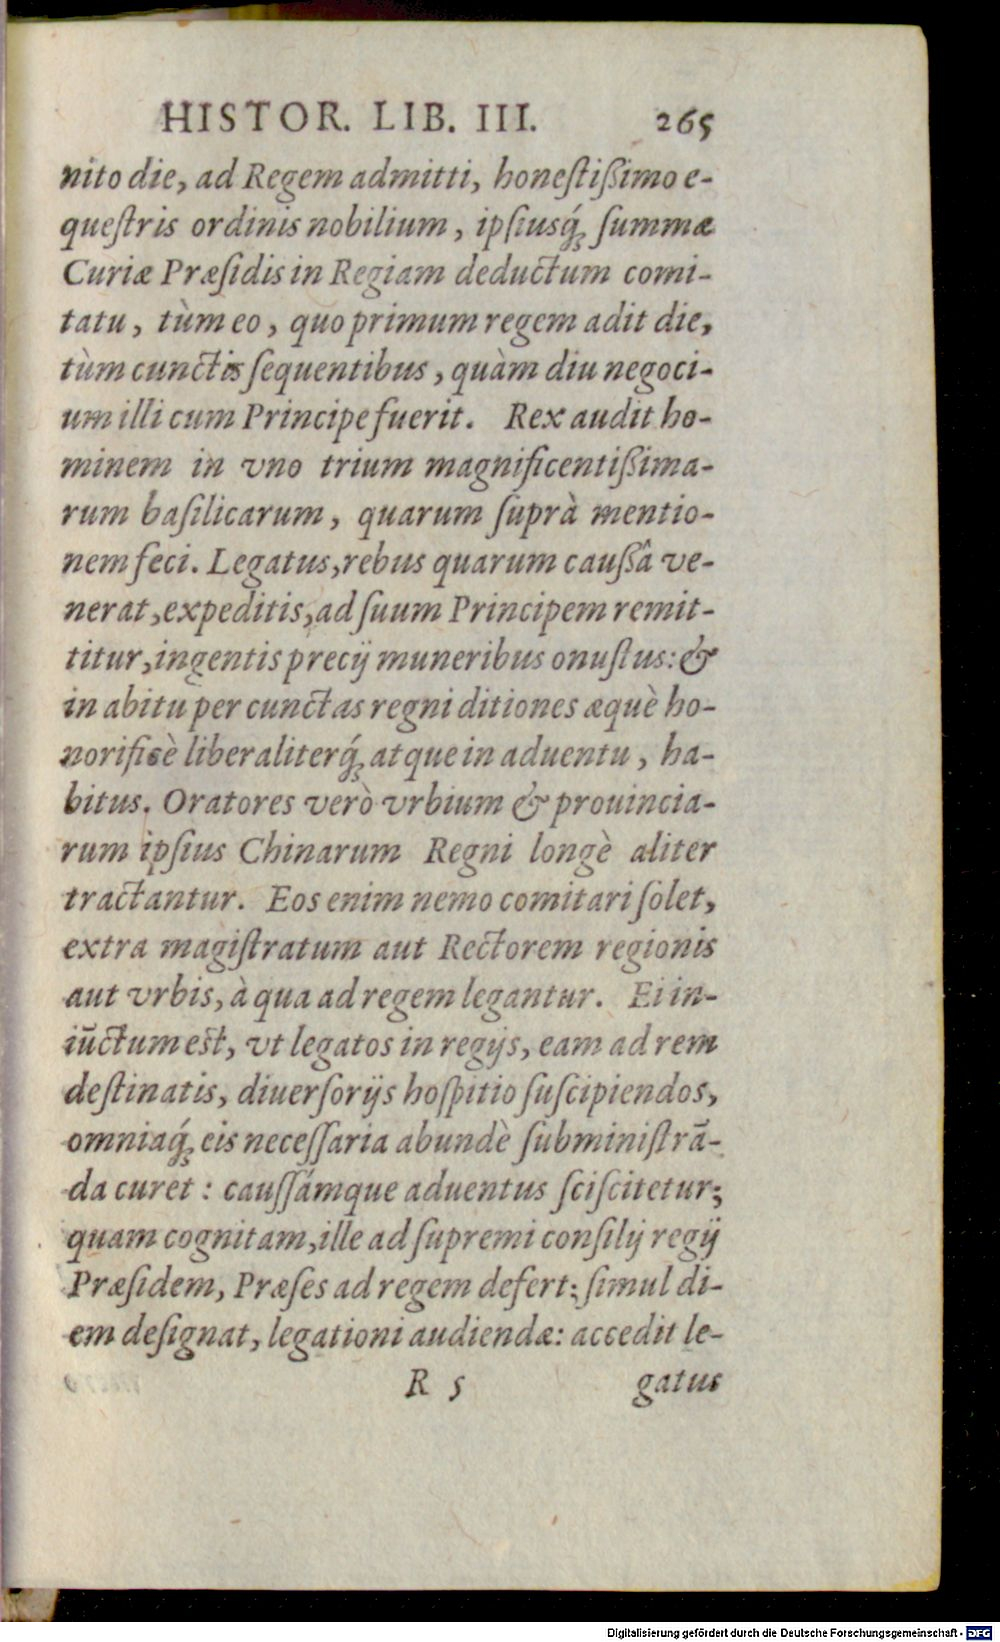 HISTOR. LIB. III. 265
nito die, ad Regem admitti, honeſtißimo e-
queſtris ordinis nobilium, ipſiusq́ꝫ ſummæ
Curiæ Præſidis in Regiam deductum comi-
tatu, tùm eo, quo primum regem adit die,
tùm cunctis ſequentibus, quàm diu negoci-
um illi cum Principe fuerit. Rex audit ho-
minem in vno trium magnificentißima-
rum baſilicarum, quarum ſuprà mentio-
nem feci. Legatus, rebus quarum caußâ ve-
nerat, expeditis, ad ſuum Principem remit-
titur, ingentis precij muneribus onuſtus: &
in abitu per cunctas regni ditiones æquè ho-
norificè liberaliterq́ꝫ atque in aduentu, ha-
bitus. Oratores verò vrbium & prouincia-
rum ipſius Chinarum Regni longè aliter
tractantur. Eos enim nemo comitari ſolet,
extra magiſtratum aut Rectorem regionis
aut vrbis, à qua ad regem legantur. Ei in-
iūctum est, vt legatos in regijs, eam ad rem
deſtinatis, diuerſorijs hoſpitio ſuſcipiendos,
omniaq́ꝫ eis neceſſaria abundè ſubminiſtrā-
da curet: cauſſámque aduentus ſciſcitetur;
quam cognitam, ille ad ſupremi conſilij regij
Præſidem, Præſes ad regem defert: ſimul di-
em deſignat, legationi audiendæ: accedit le-
R 5 gatus
Digitalisierung gefördert durch die Deutsche Forschungsgemeinschaft - DFG